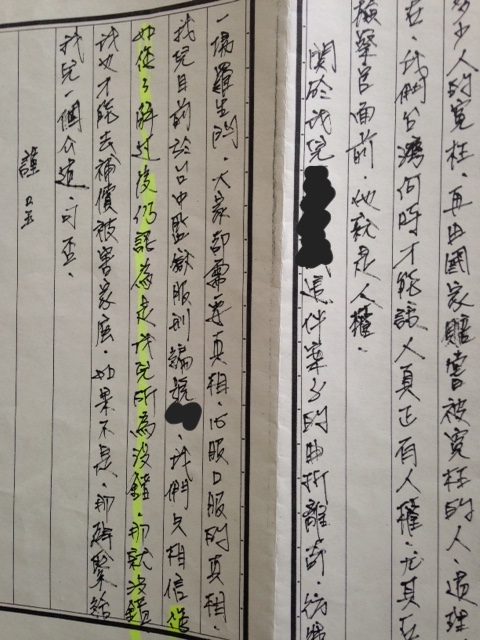 多少人的冤枉．再由國家賠嘗被冤枉的人．道理
在．我們台灣何時才能讓人真正有人權．尤其在
檢察官面前．他就是人權．
關於我兒 這件案子的曲折離奇．彷彿
一場羅生門．大家都需要真相．心服口服的真相．
我兒目前於台中監獄服刑編號 ．我們父相信您
如您了解过後仍認為是我兒所為沒錯．那就沒錯
我也才能去補償被害家庭．如果不是．那 給
我兒一個公道．可否．
謹呈